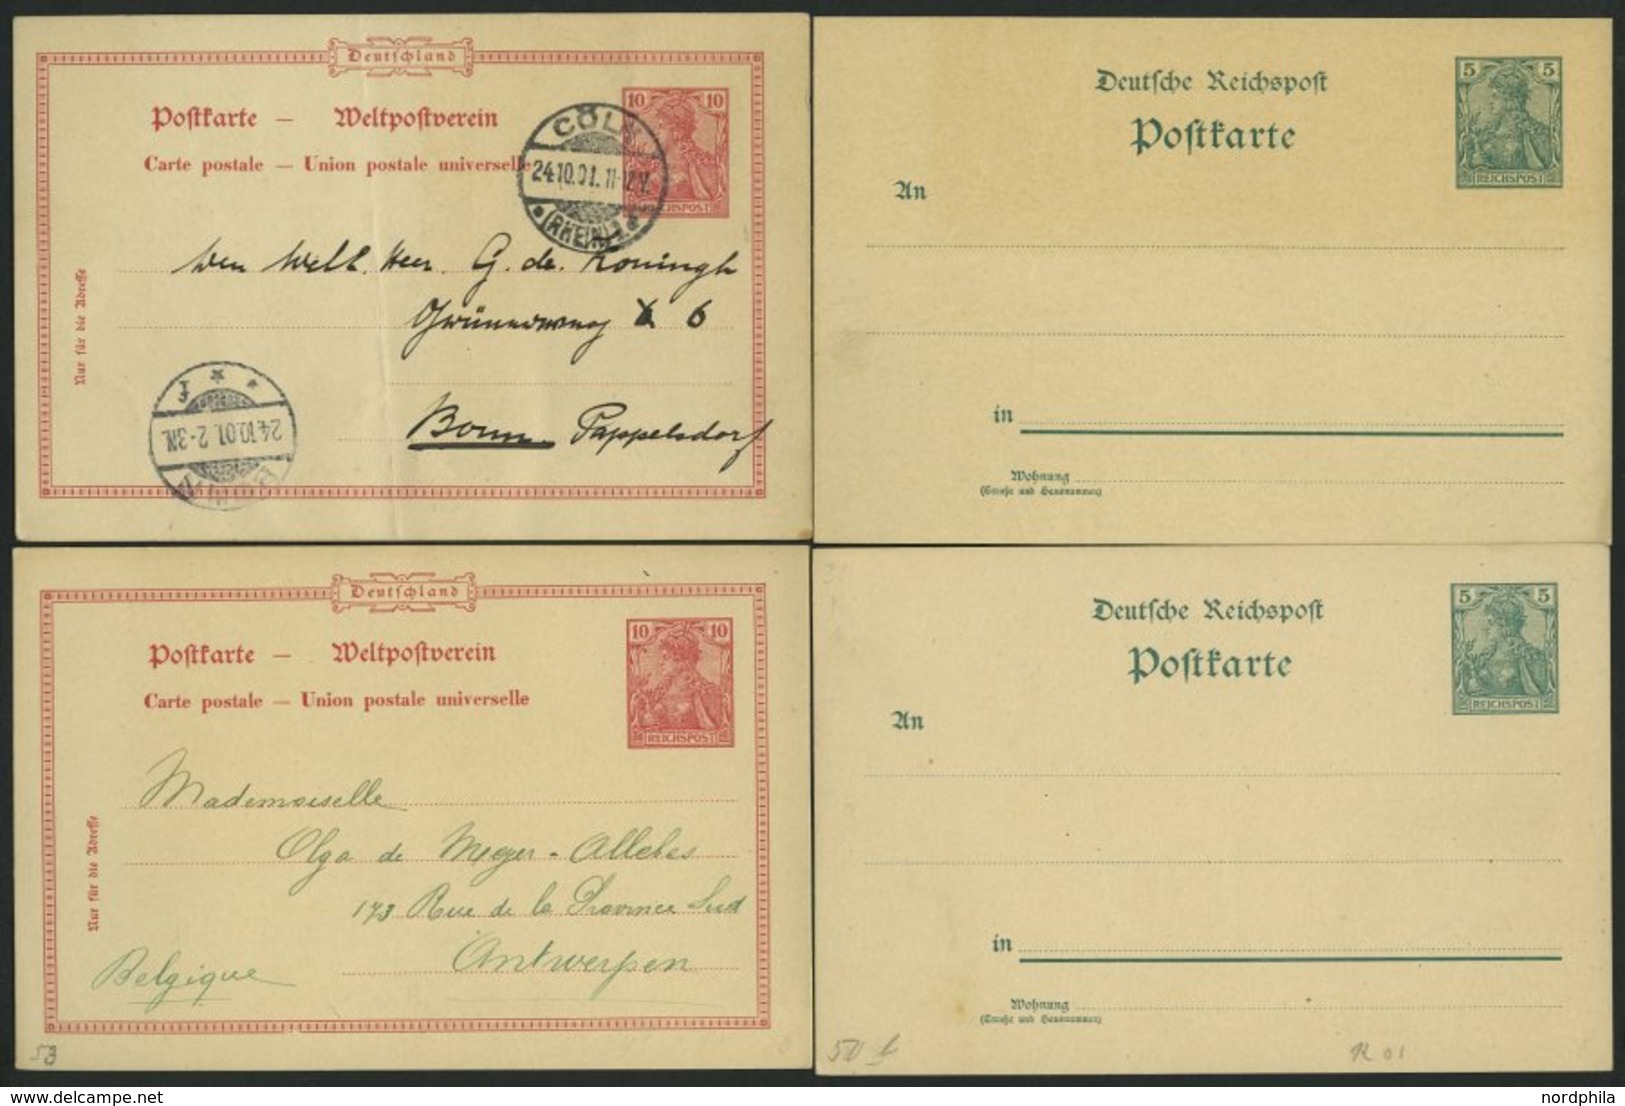 Deutschland
Postkarte — Weltpostverein
Carte postale — Union postale universelle
10 10
REICHSPOST
CÖLN
24.10.01. 11-12V.
(RHEIN) 1
Nur für die Adresse
Den Herr. G. de. Koningh
6
Bonn Poppelsdorf
24.10.01. 2-3N.
Deutsche Reichspost
Postkarte
5 5
REICHSPOST
An
in
Wohnung
(Straße und Hausnummer)
Deutschland
Postkarte — Weltpostverein
Carte postale — Union postale universelle
10 10
REICHSPOST
Nur für die Adresse
Mademoiselle
Olga de Meyer - Allebas
173 Rue de la Province Sud
Antwerpen
Belgique
Deutsche Reichspost
Postkarte
5 5
REICHSPOST
An
in
Wohnung
(Straße und Hausnummer)
R 01
www.nordphila.de